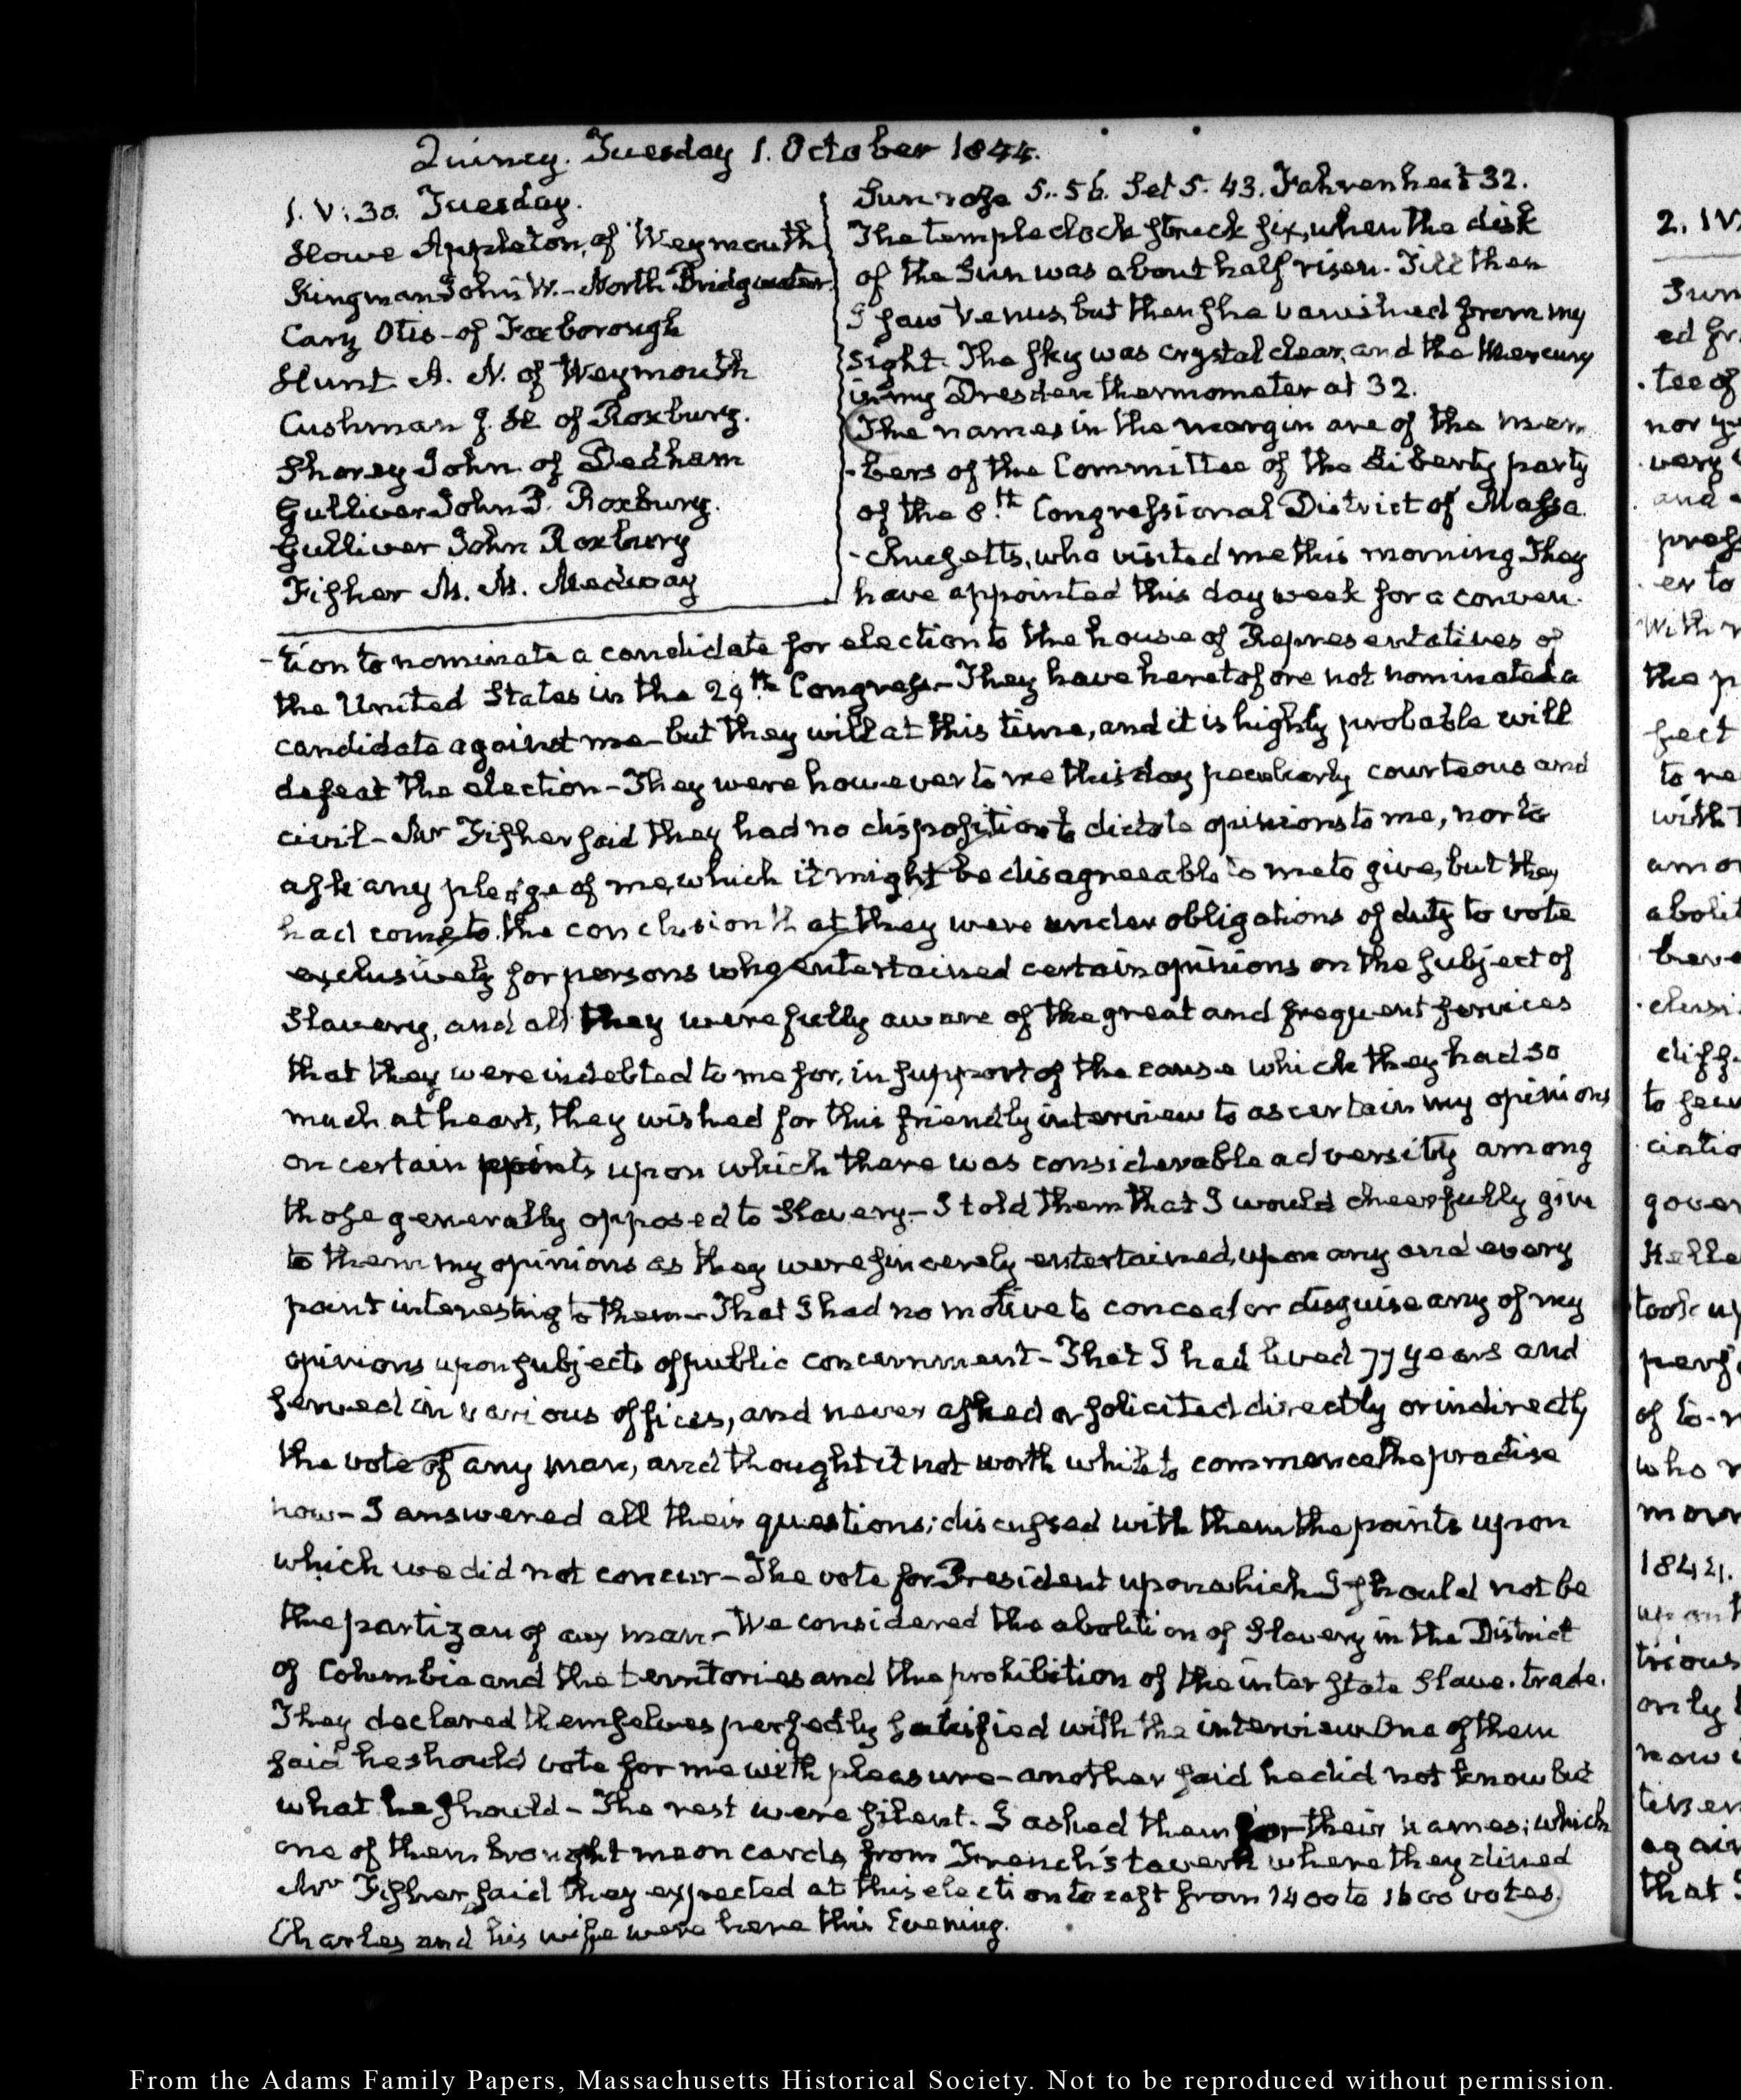 Quincy. Tuesday 1. October 1844.
1. V:30. Tuesday.
Howe Appleton, of Weymouth
Kingman John W.- North Bridgwater
Cary Otis - of Foxborough
Hunt. A. N. of Weymouth
Cushman J. H. of Roxbury.
Shorey John of Dedham
Gulliver John P. Roxbury.
Gulliver John Roxbury
Fisher M. M. Medway
Sun rose 5..56. Set 5. 43. Fahrenheit 32.
The temple clock struck six, when the disk
of the Sun was about half risen. Till then
I saw Venus, but then she vanished from my
sight. The sky was crystal clear, and the Mercury
in my Dresden thermometer at 32.
The names in the margin are of the mem
-bers of the Committee of the Liberty party
of the 8.th Congressional District of Massa
-chusetts, who visited me this morning They
have appointed this day week for a conven-
-tion to nominate a candidate for election to the house of Representatives of
the United States in the 29th Congress- They have heretofore not nominated a
candidate against me- but they will at this time, and it is highly probable will
defeat the election - They were however to me this day peculiarly courteous and
civil - Mr Fisher said they had no disposition to dictate opinions to me, nor to
ask any pledge of me, which it might be disagreeable to me to give, but they
had come to the conclusion that they were under obligations of duty to vote
exclusively for persons who entertained certain opinions on the subject of
Slavery, and as they were fully aware of the great and frequent services
that they were indebted to me for, in support of the cause which they had so
much at heart, they wished for this friendly interview to ascertain my opinions
on certain points upon which there was considerable adversity among
those generally opposed to Slavery - I told them that I would cheerfully give
to them my opinions as they were sincerely entertained, upon any and every
point interesting to them - That I had no motive to conceal or disguise any of my
opinions upon subjects of public concernment - That I had lived 77 years and
served in various offices, and never asked or solicited directly or indirectly
the vote of any man, and thought it not worth while to commence the practise
now - I answered all their questions; discussed with them the points upon
which we did not concur - The vote for President upon which I should not be
the partizan of any man - We considered the abolition of Slavery in the District
of Columbia and the territories and the prohibition of the inter State Slave-trade.
They declared themselves perfectly satisfied with the interview One of them
said he should vote for me with pleasure - another said he did not know but
what he should - The rest were silent. I asked them for their names; which
one of them brought me on cards, from French's tavern where they dined
Mr Fisher said they expected at this election to cast from 1400 to 1600 votes.
Charles and his wife were here this Evening.
2. IV
Sun
ed fr
-tee of
nor
very
and
er to
with
the p
fect
to re
with t
amo
abolit
-clusi
diff
to
ciatio
gover
took up
perf
of to-
who
mor
1844.
trious
only
now
again
that
From the Adams Family Papers, Massachusetts Historical Society. Not to be reproduced without permission.